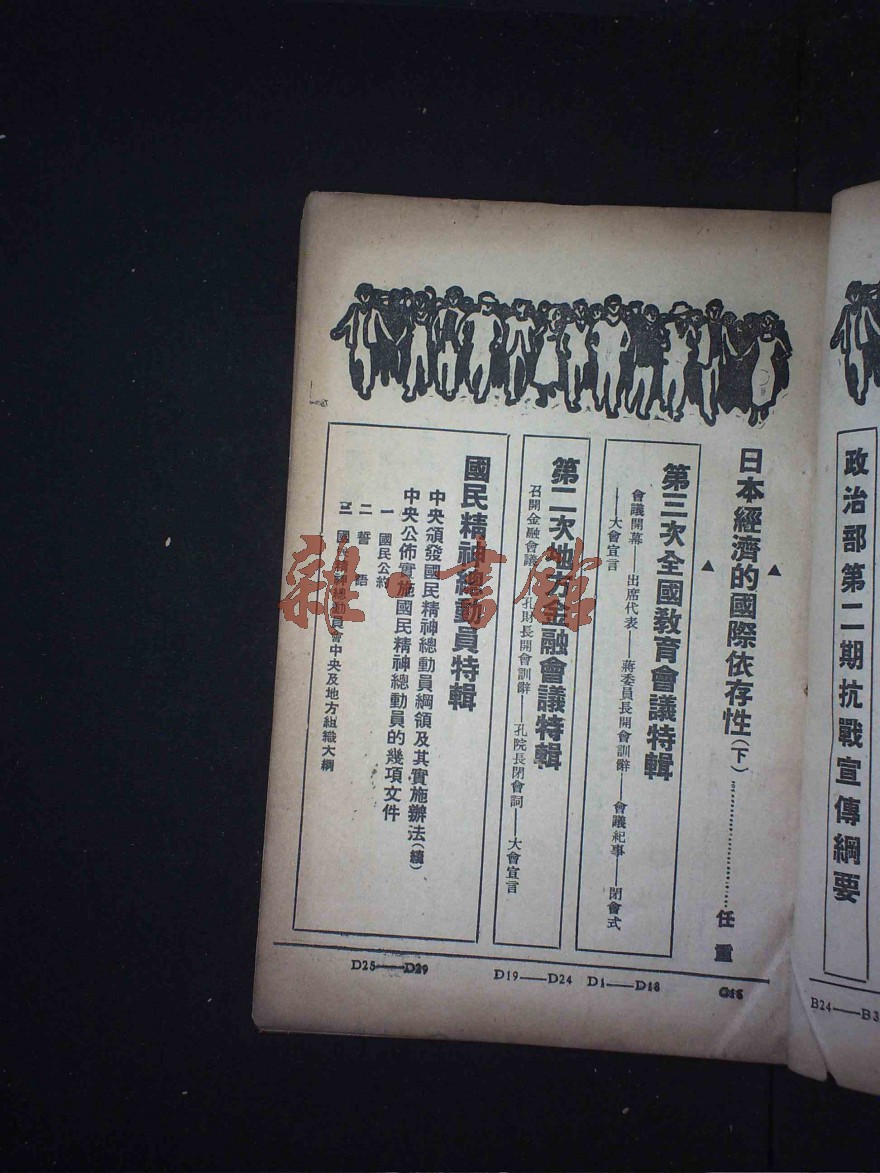 政治部第二期抗戰宣傳綱要
B24——B3
日本經濟的國際依存性(下)…………………………任重
第三次全國教育會議特輯
會議開幕——出席代表——蔣委員長開會訓辭——會議紀事——閉會式
——大會宣言
D1——D18
第二次地方金融會議特輯
召開金融會議——孔財長開會訓辭——孔院長閉會詞——大會宣言
D19——D24
國民精神總動員特輯
中央頒發國民精神總動員綱領及其實施辦法(續)
中央公佈實施國民精神總動員的幾項文件
一 國民公約
二 誓語
三 國民精神總動員會中央及地方組織大綱
D25——D29
雜·書館